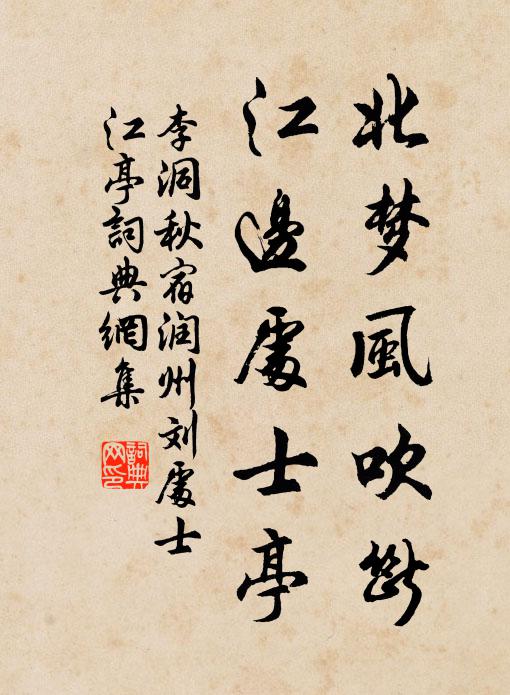 北梦風吹斷
江邊處士亭
李洞秋宿润州刘處士
江亭詞典網集
詞典
网印